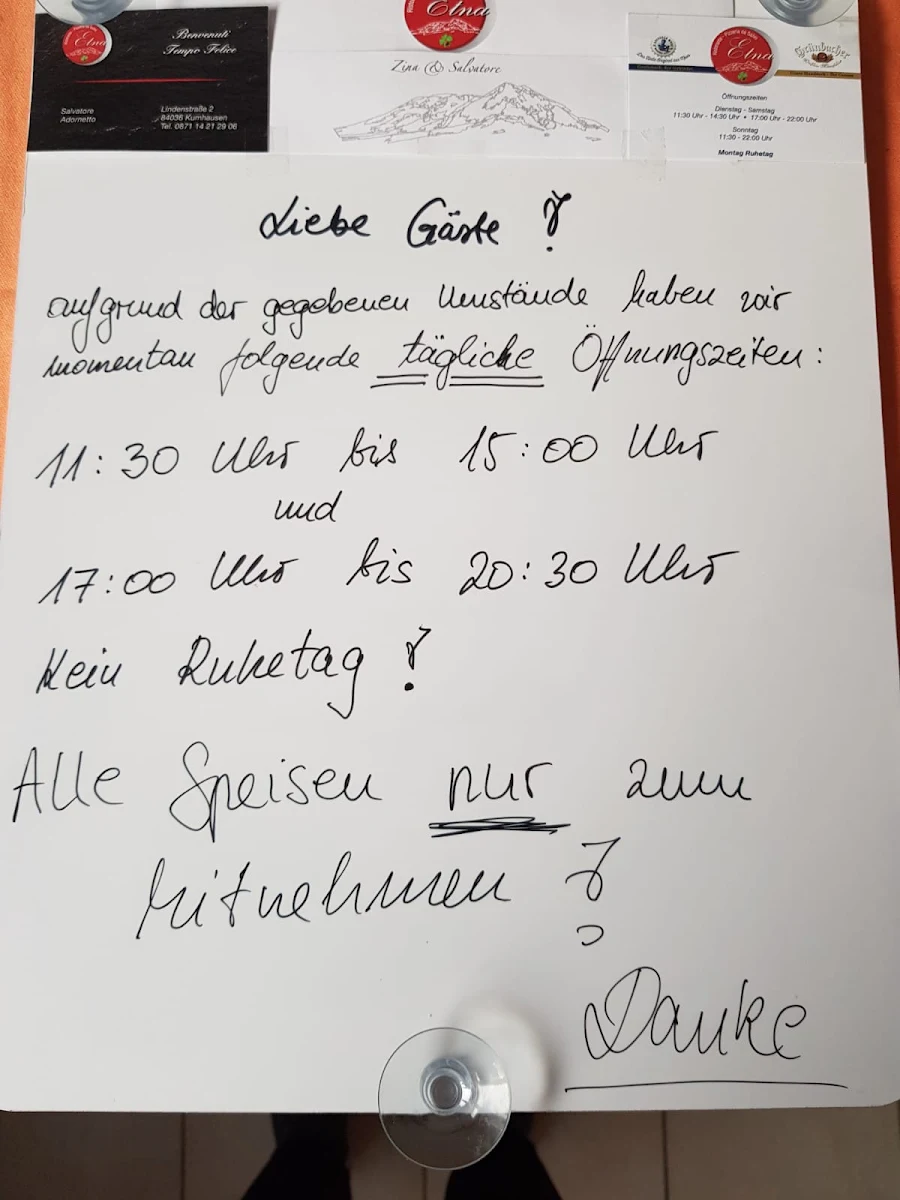 Etna
Benvenuti
Tempo Felice
Salvatore
Adornetto
Lindenstraße 2
84036 Kumhausen
Tel. 0871 14 21 29 06
Etna
Zina & Salvatore
Etna
Öffnungszeiten
Dienstag - Samstag
11:30 Uhr - 14:30 Uhr • 17:00 Uhr - 22:00 Uhr
Sonntag
11:30 - 22:00 Uhr
Montag Ruhetag
Liebe Gäste !
aufgrund der gegebenen Umstände haben wir
momentan folgende tägliche Öffnungszeiten :
11:30 Uhr bis 15:00 Uhr
und
17:00 Uhr bis 20:30 Uhr
Kein Ruhetag !
Alle Speisen nur zum
Mitnehmen !
Danke